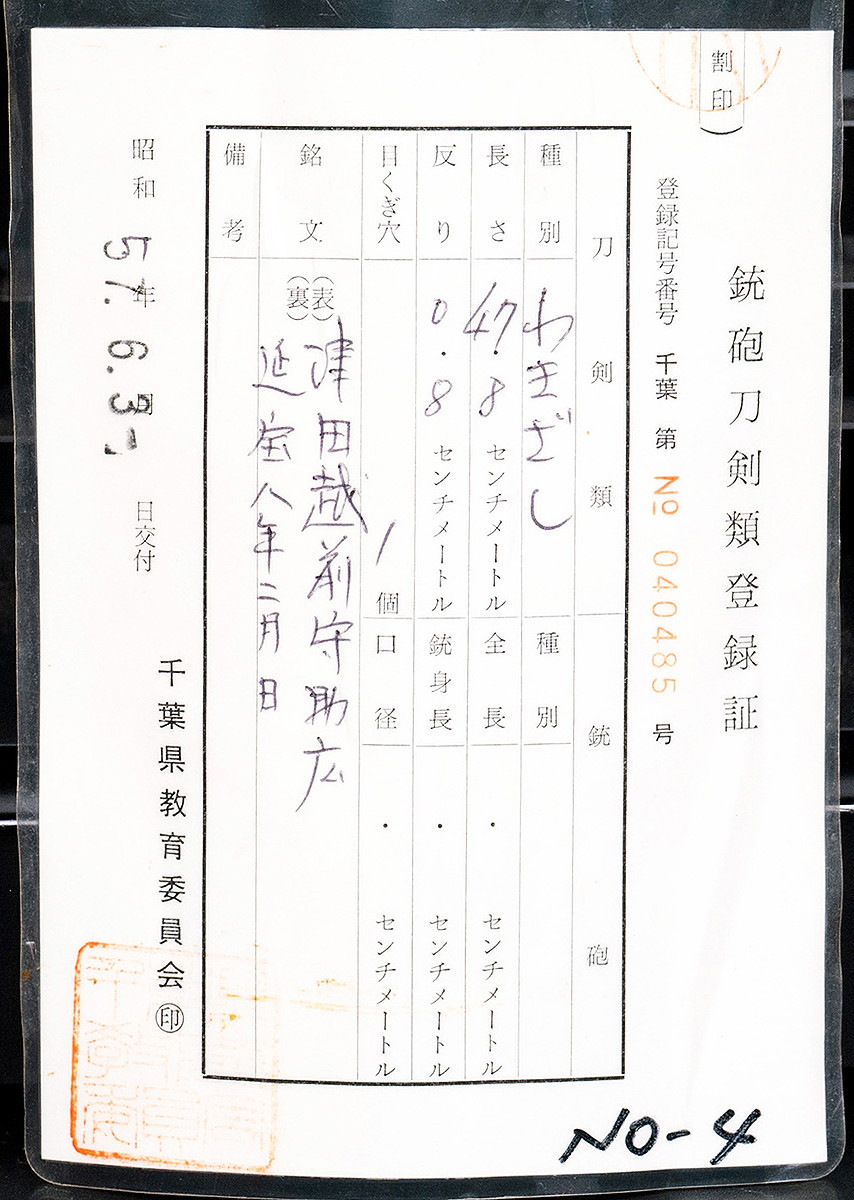 (割印)
銃砲刀剣類登録証
登録記号番号 千葉 第 No 040485 号
刀剣類
銃砲
種別 わきざし
長さ 47.8 センチメートル
反り 0.8 センチメートル
目くぎ穴 1 個
銘文 (表) 津田越前守助広
(裏) 延宝八年二月日
備考
種別
全長 ・ センチメートル
銃身長 ・ センチメートル
口径 ・ センチメートル
昭和 57.年 6.3月 日交付
千葉県教育委員会 ㊞
NO-4